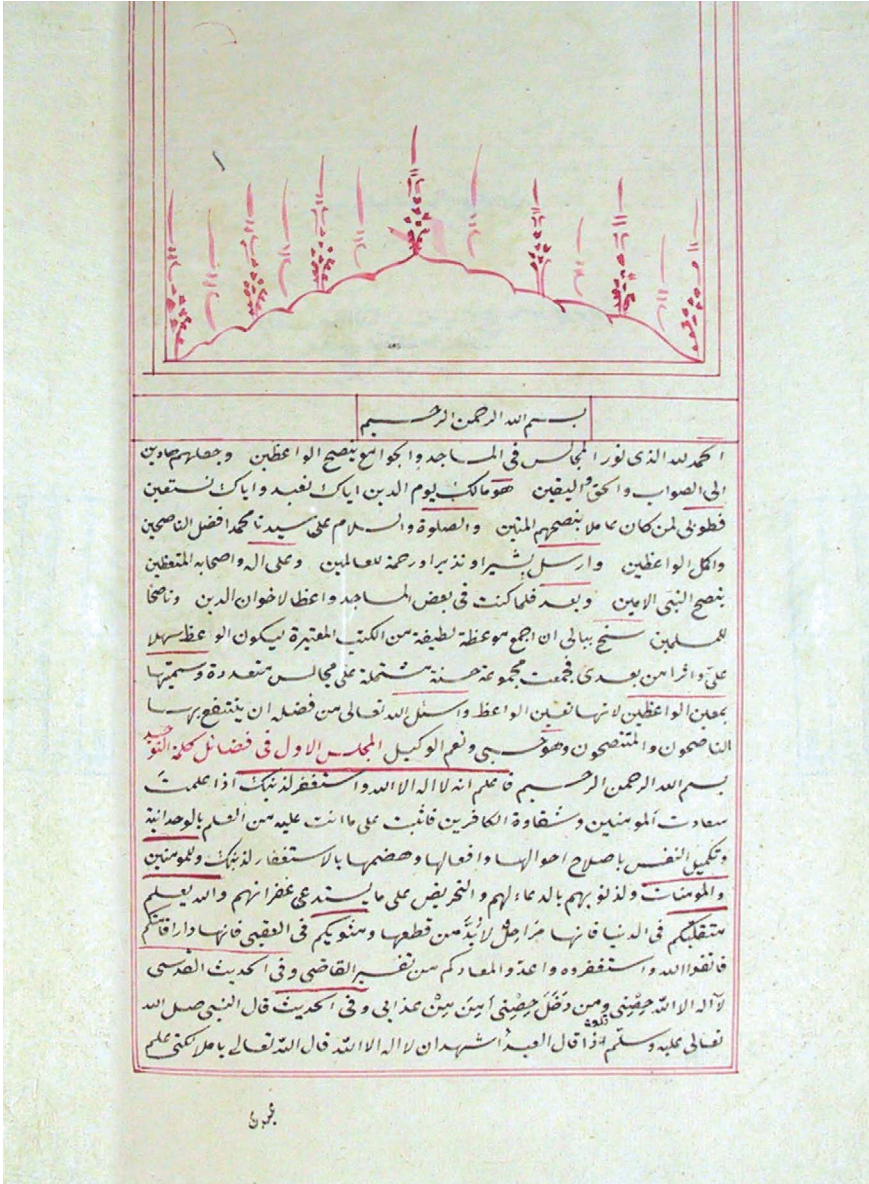 بسم الله الرحمن الرحيم
الحمد لله الذى نور المجالس فى المساجد والجوامع بنصح الواعظين وجعلهم هادين
الى الصواب والحق واليقين هو مالك يوم الدين اياك نعبد واياك نستعين
فطوبى لمن كان عاملا بنصحهم المتين والصلوة والسلام على سيدنا محمد افضل الناصحين
واكمل الواعظين وارسل بشيرا ونذيرا ورحمة للعالمين وعلى اله واصحابه المتعظين
بنصح النبى الامين وبعد فلما كنت فى بعض المساجد واعظا لاخوان الدين وناصحا
للمسلمين سنح ببالى ان اجمع موعظة لطيفة من الكتب المعتبرة ليكون الوعظ سهلا
علىّ وافرا من بعدى فجمعت مجموعة حسنة مشتملة على مجالس متعددة وسميتها
بمعين الواعظين لانها تعين الواعظ واسئل الله تعالى من فضله ان ينتفع بها
الناصحون والمتنصحون وهو حسبى ونعم الوكيل المجلس الاول فى فضائل كلمة التوحيد
بسم الله الرحمن الرحيم فاعلم انه لا اله الا الله واستغفر لذنبك اذا علمت
سعادت المومنين وشقاوة الكافرين فاثبت على ما انت عليه من العلم بالوحدانية
وتكميل النفس باصلاح احوالها وافعالها وهضمها بالاستغفار لذنبك وللمومنين
والمومنات ولذنوبهم بالدعاء لهم والتحريض على ما يستدعى غفرانهم والله يعلم
متقلبكم فى الدنيا فانها مراحل لابدّ من قطعها ومثويكم فى العقبى فانها دار اقامتكم
فاتقوا الله واستغفروه واعدوا لمعادكم من تفسير القاضى وفى الحديث القدسى
لا اله الا الله حِصْنِى ومن دَخَلَ حِصْنِى اَمِنَ مِنْ عذابى وفى الحديث قال النبى صلى الله
تعالى عليه وسلّم اذا قال العبدُ اشهد ان لا اله الا الله قال الله تعالى يا ملائكتى علم